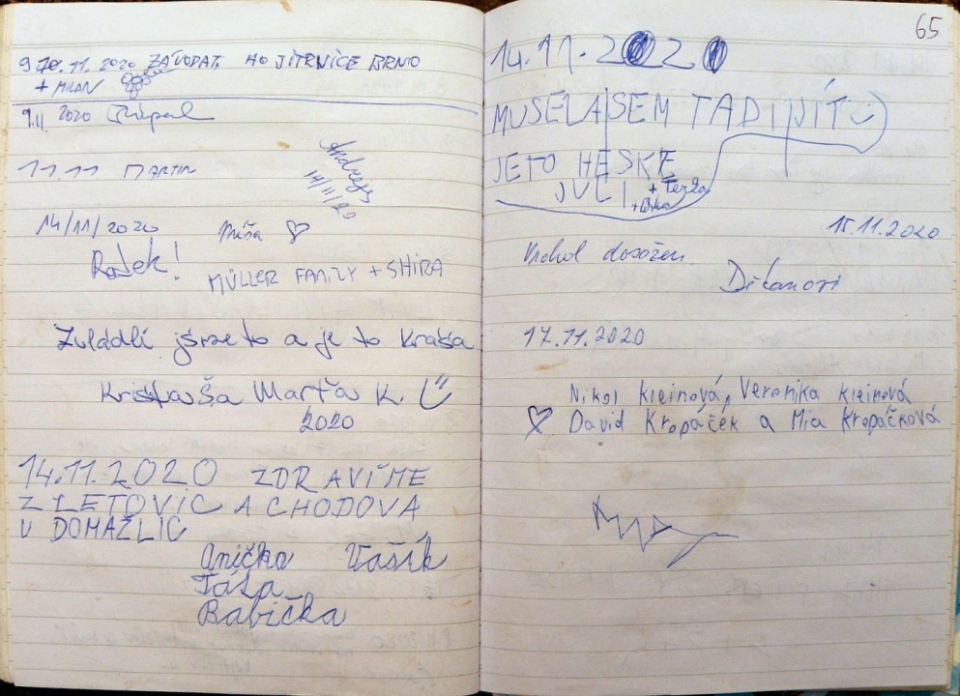 11.2020 ZÁVODAT HO JITRNICE BRNO
+ MILAN
9.11 2020
11.11 MARTIN
Andreys
14/11/20
14/11/2020
Míša
Radek!
MÜLLER FAMILY + SHIRA
Zvládli jsme to a je to Krása
Marťa K.
2020
14.11.2020 ZDRAVÍME
Z LETOVIC A CHODOVA
U DOMAŽLIC
Anička Vašík
Táťa
Babička
65
14.11.2020
MUSELA SEM TADI JÍT :)
JE TO HESKE
JUCI + Terka
15.11.2020
Vrchol dosažen.
17.11.2020
Nikol Kleinová, Veronika Kleinová
David Kropáček a Mia Kropáčková